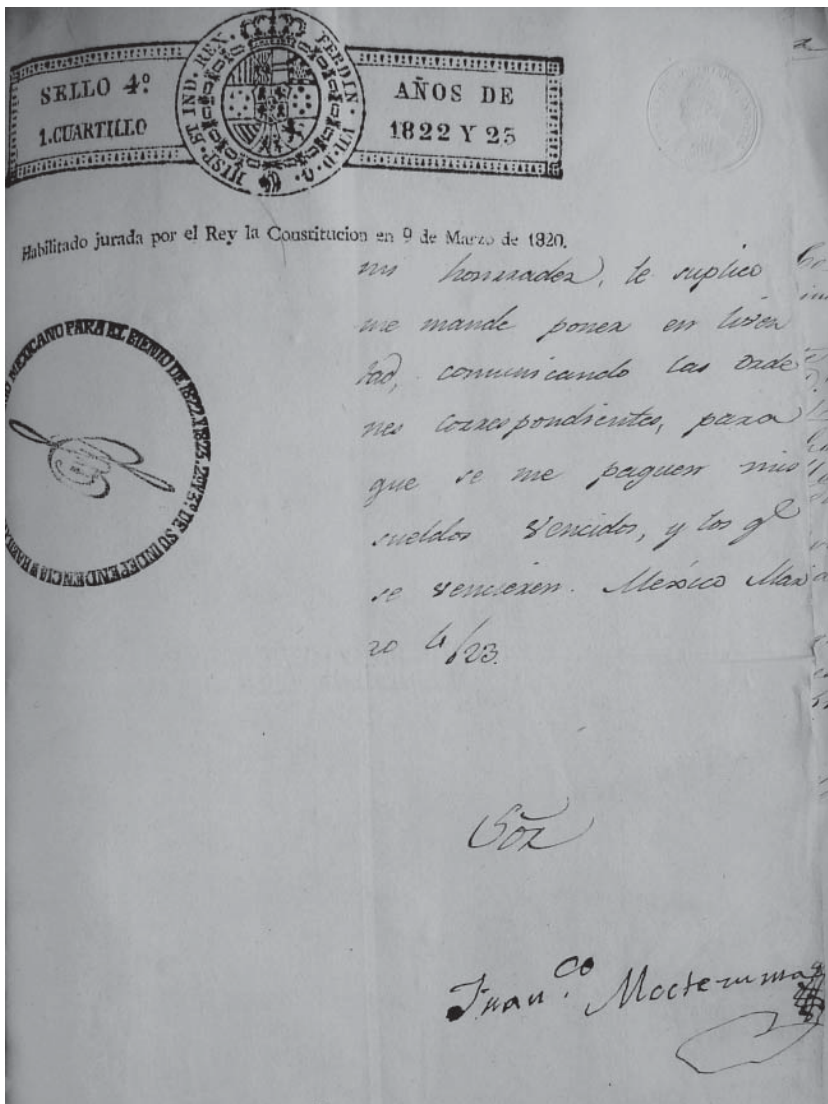 SELLO 4º
1.CUARTILLO
HISP. ET IND. REX. FERDIN. VII. D. G.
AÑOS DE
1822 Y 23
Habilitado jurada por el Rey la Constitucion en 9 de Marzo de 1820.
MEXICANO PARA EL BIENIO DE 1822 Y 1823. 2º Y 3º DE SU INDEPENDENCIA
mi honrradez, le suplico
me mande poner en liver
tad, comunicando las orde
nes correspondientes, para
que se me paguen mis
sueldos vencidos, y los qe
se vencieren. Mexico Mar
zo 4/23.
Sõr
Franco. Moctezuma